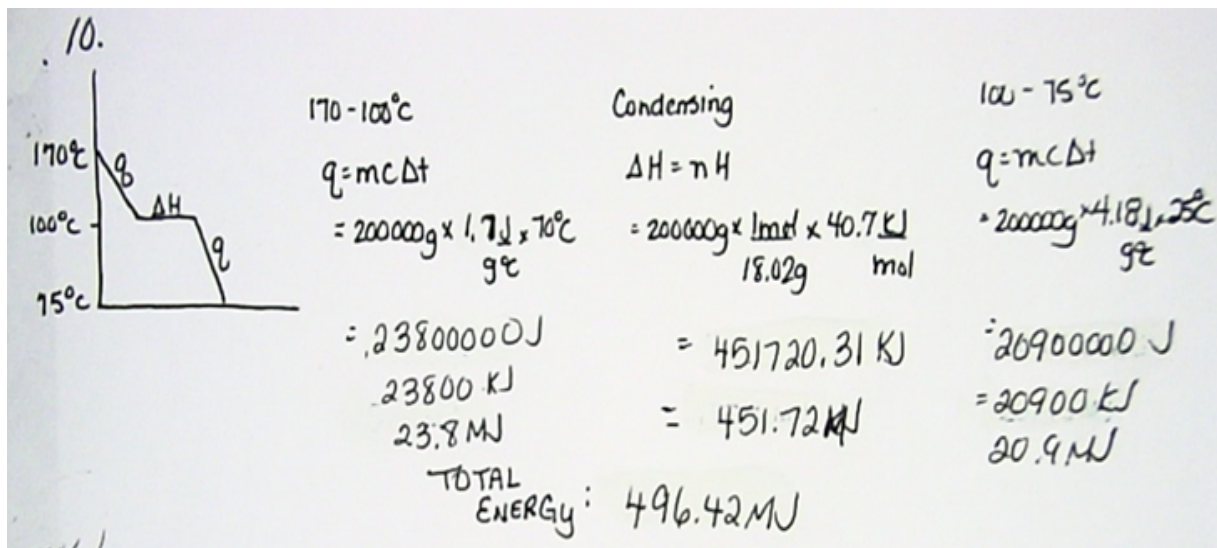 10.
170℃
q
ΔH
100℃
q
75°C
170-100°C
q=mcΔt
= 200000g x 1.7J x 70°C
g℃
= 23800000J
23800 KJ
23.8 MJ
Condensing
ΔH = nH
= 200000g x 1mol x 40.7 KJ
18.02g mol
= 451720.31 KJ
= 451.72 MJ
100-75°C
q=mcΔt
= 200000g x 4.18J x 25°C
g℃
= 20900000 J
= 20900 KJ
20.9 MJ
TOTAL
ENERGY: 496.42 MJ